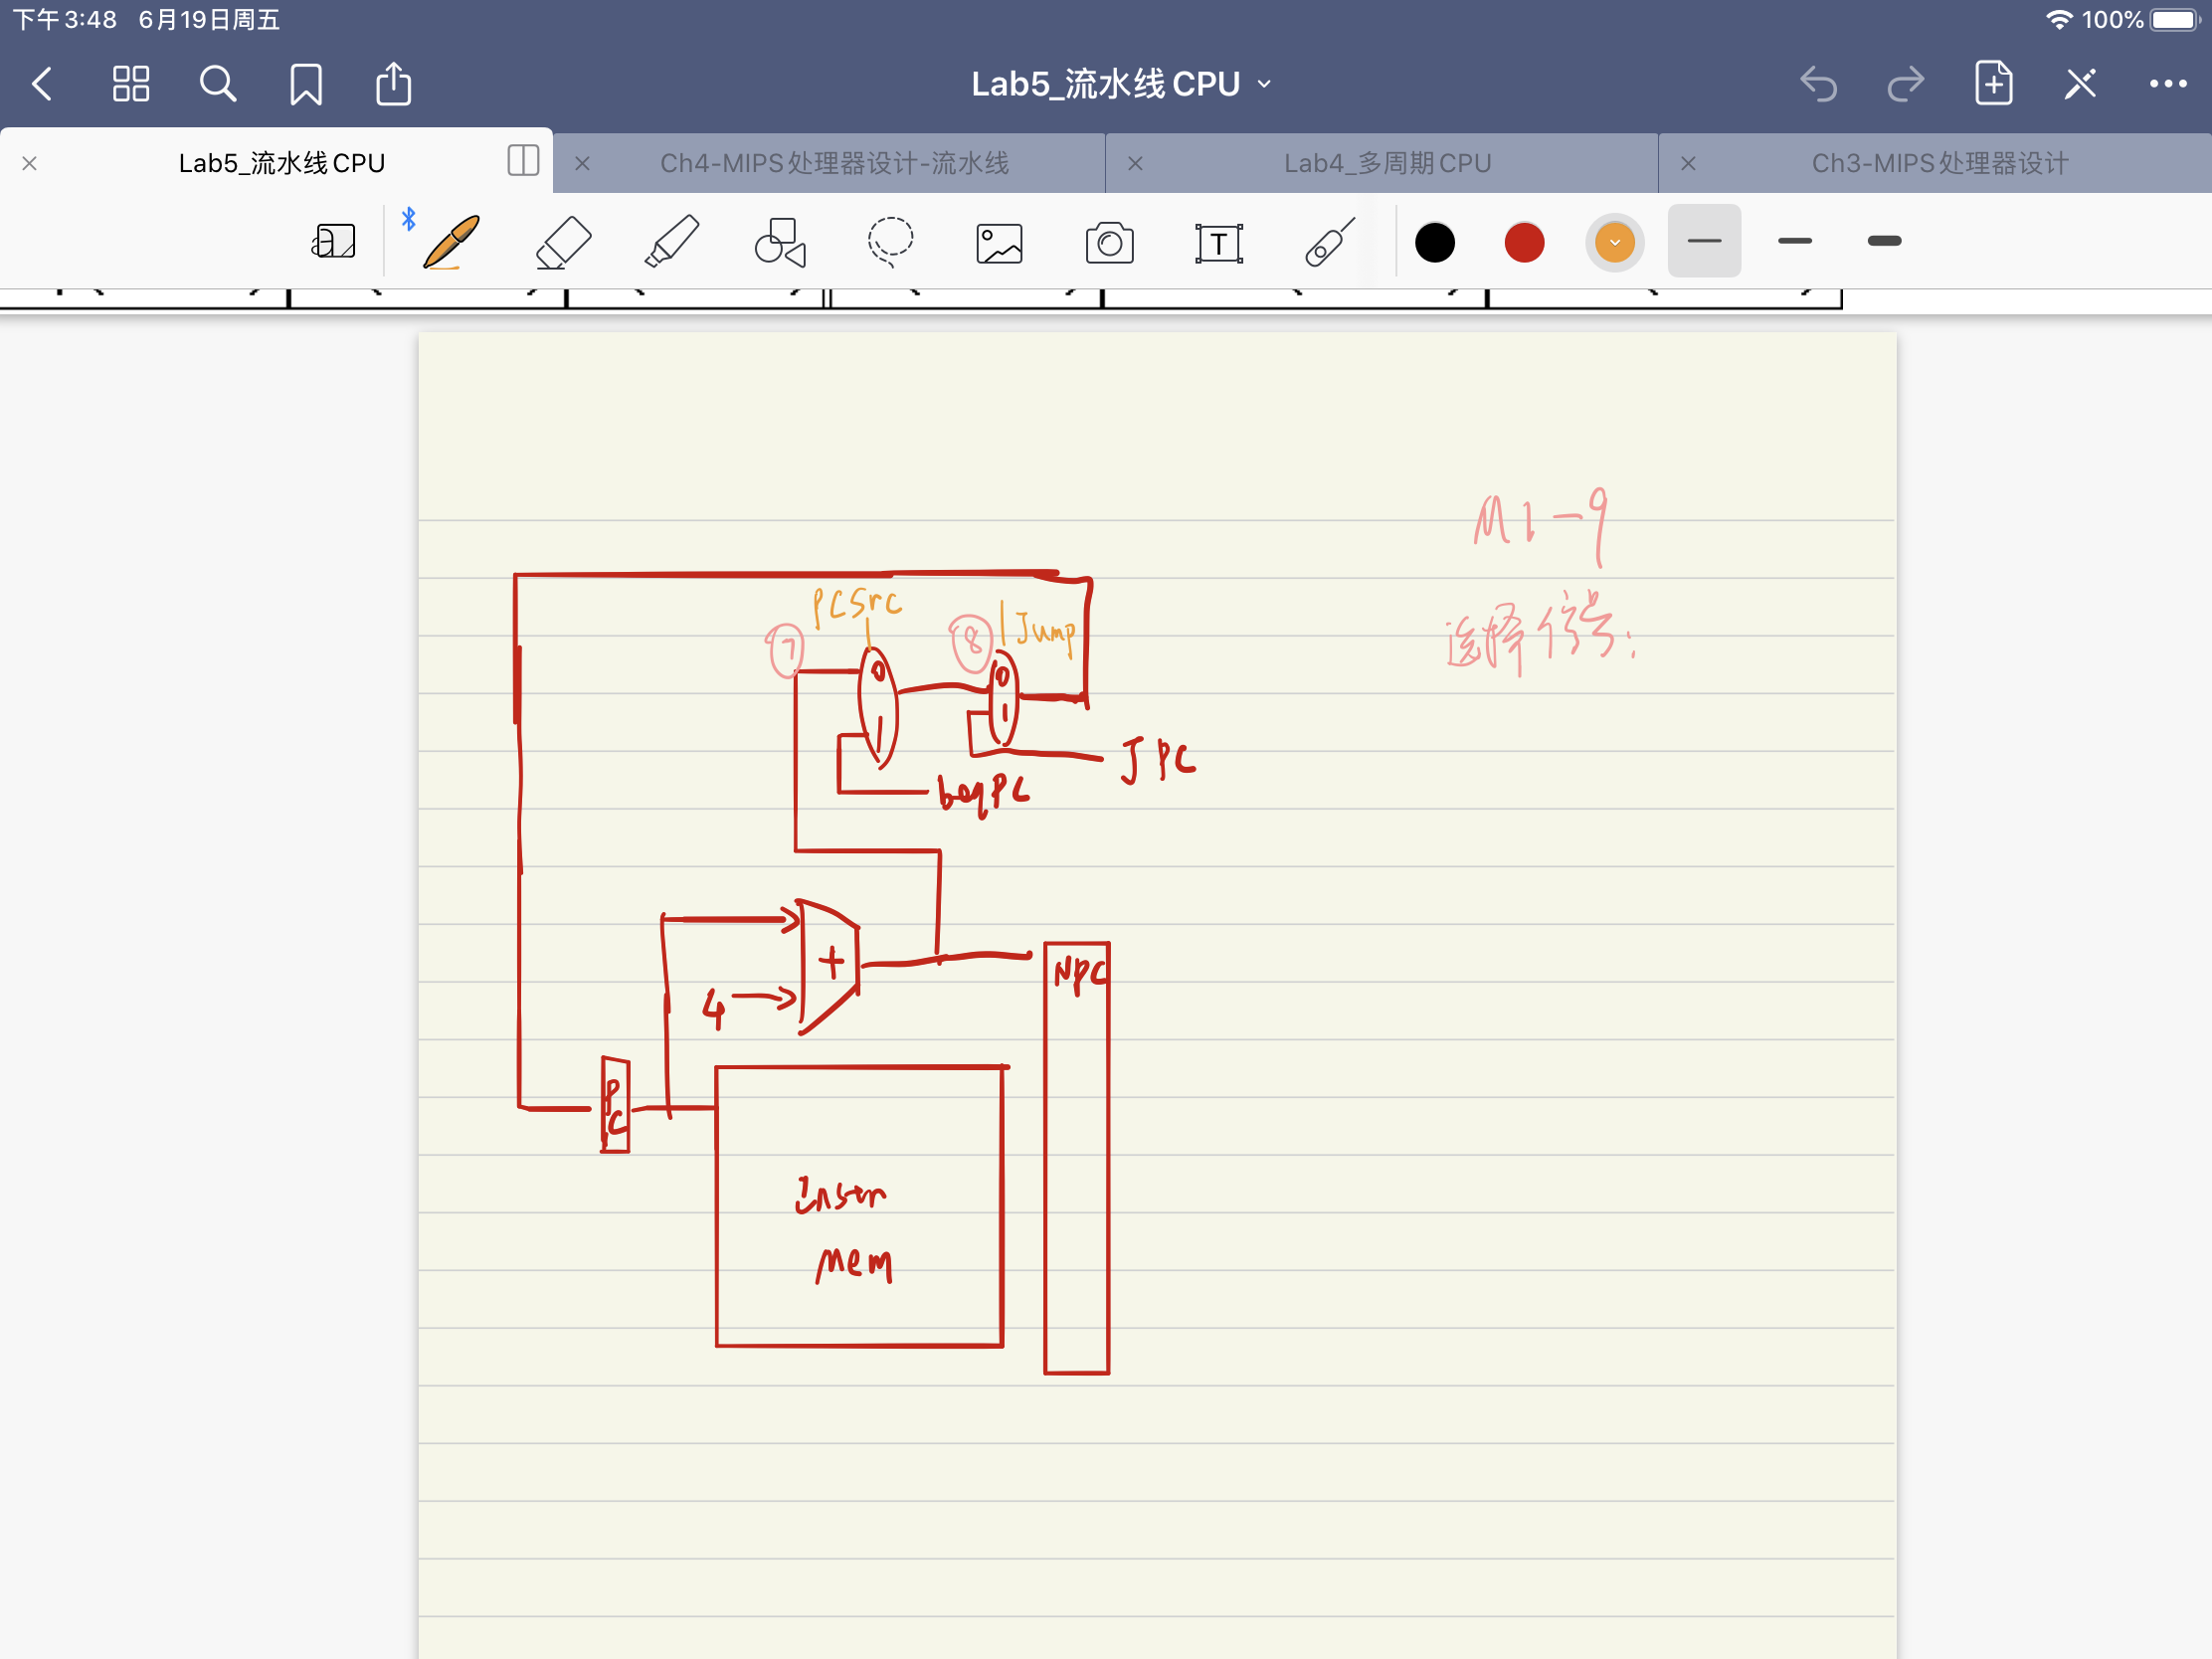 下午3:48 6月19日周五 100%
Lab5_流水线CPU
Lab5_流水线CPU Ch4-MIPS处理器设计-流水线 Lab4_多周期CPU Ch3-MIPS处理器设计
a T
M1-9
选择信号:
PCSrc
7 8 Jump
0 0
1 1
JPC
beqPC
+
NPC
4
PC
Instr
Mem